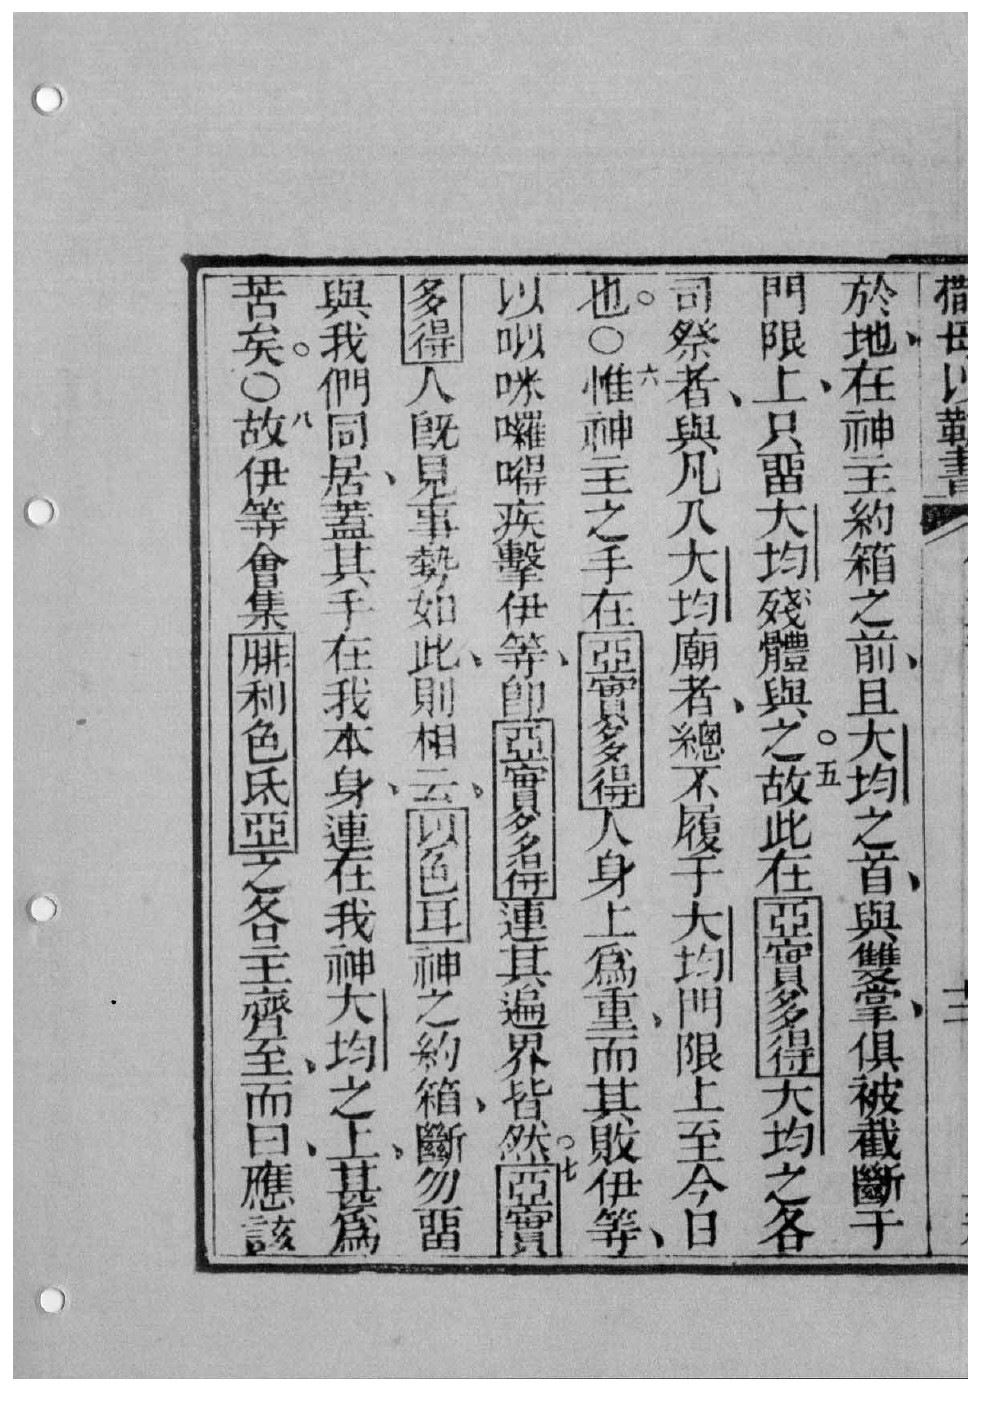 撒母以勒書
於地、在神主約箱之前、且大均之首、與雙掌、俱被截斷于
門限上、只畱大均殘體與之。五故此在亞實多得大均之各
司祭者、與凡入大均廟者、總不履于大均門限上至今日
也。○六惟神主之手在亞實多得人身上爲重、而其敗伊等、
以㕥咪囉嘚疾擊伊等、卽亞實多得連其遍界皆然。七亞實
多得人旣見事勢如此、則相云、以色耳神之約箱、斷勿畱
與我們同居、蓋其手在我本身、連在我神大均之上、甚爲
苦矣。○八故伊等會集腓利色氐亞之各主齊至、而曰、應該